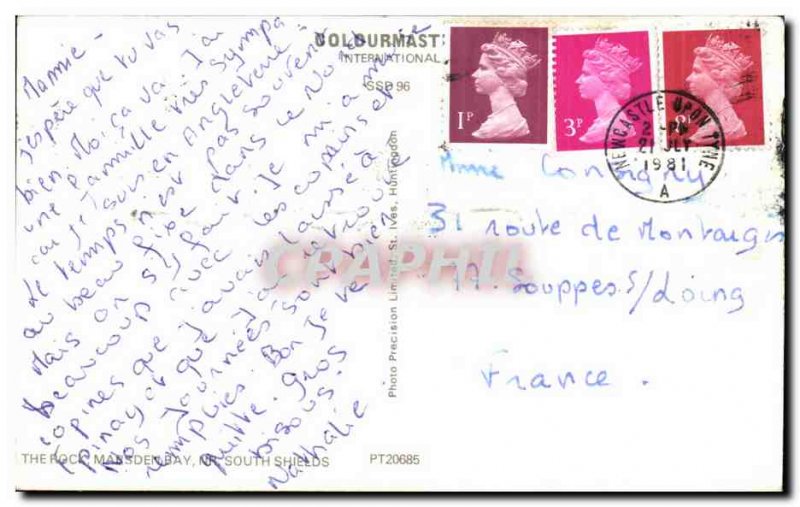 COLOURMAST
INTERNATIONAL
SSD 96
Mamie -
J'espère que tu vas
bien. Moi ça va. J'ai
une famille très sympa
car je suis en Angleterre.
Le temps n'est pas souvent
au beau fixe dans ce Nord
Mais on s'y fait. Je m'amuse
beaucoup avec les copains et
copines que j'avais laissé à
Epinay et que j'ai retrouvé
Nos journées sont bien
remplies. Bon Je te
quitte. Gros
bisous.
Nathalie
THE ROCK, MARSDEN BAY, NR. SOUTH SHIELDS
PT20685
Photo Precision Limited, St. Ives, Huntingdon
1P
3P
NEWCASTLE UPON TYNE
2 - PM
21 JLY
1981
A
31 route de Montargis
77. Souppes s/Loing
France.
CPAPHIL